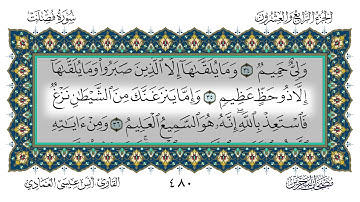 الجزء الرابع والعشرون
سورة فصلت
وَلِيٌّ حَمِيمٌ ٣٤ وَمَا يُلَقَّىٰهَآ إِلَّا ٱلَّذِينَ صَبَرُوا۟ وَمَا يُلَقَّىٰهَآ
إِلَّا ذُو حَظٍّ عَظِيمٍ ٣٥ وَإِمَّا يَنزَغَنَّكَ مِنَ ٱلشَّيْطَٰنِ نَزْغٌ
فَٱسْتَعِذْ بِٱللَّهِ إِنَّهُۥ هُوَ ٱلسَّمِيعُ ٱلْعَلِيمُ ٣٦ وَمِنْ ءَايَٰتِهِ
٤٨٠
القارئ ابن عيسى العمادي